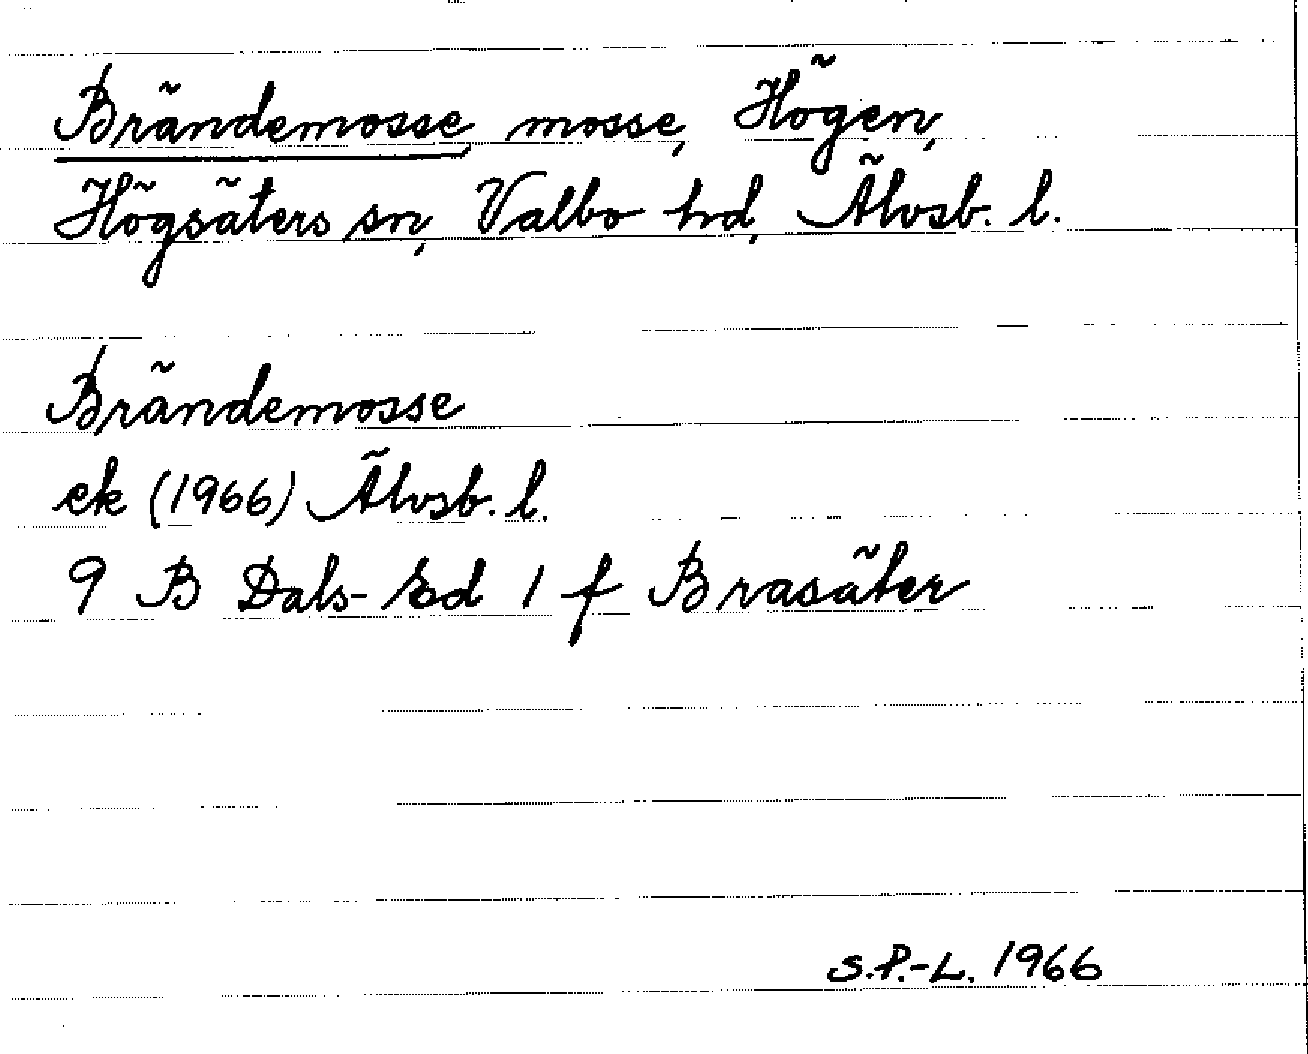 Brändemosse, mosse, Högen,
Högsäters sn, Valbo hd, Älvsb. l.
Brändemosse
ek (1966) Älvsb. l.
9 B Dals-Ed 1 f Brasäter
S.P.-L. 1966